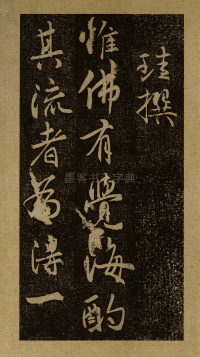 珪撰
惟佛有覺海酌
其流者為浔一
墨客书法字典